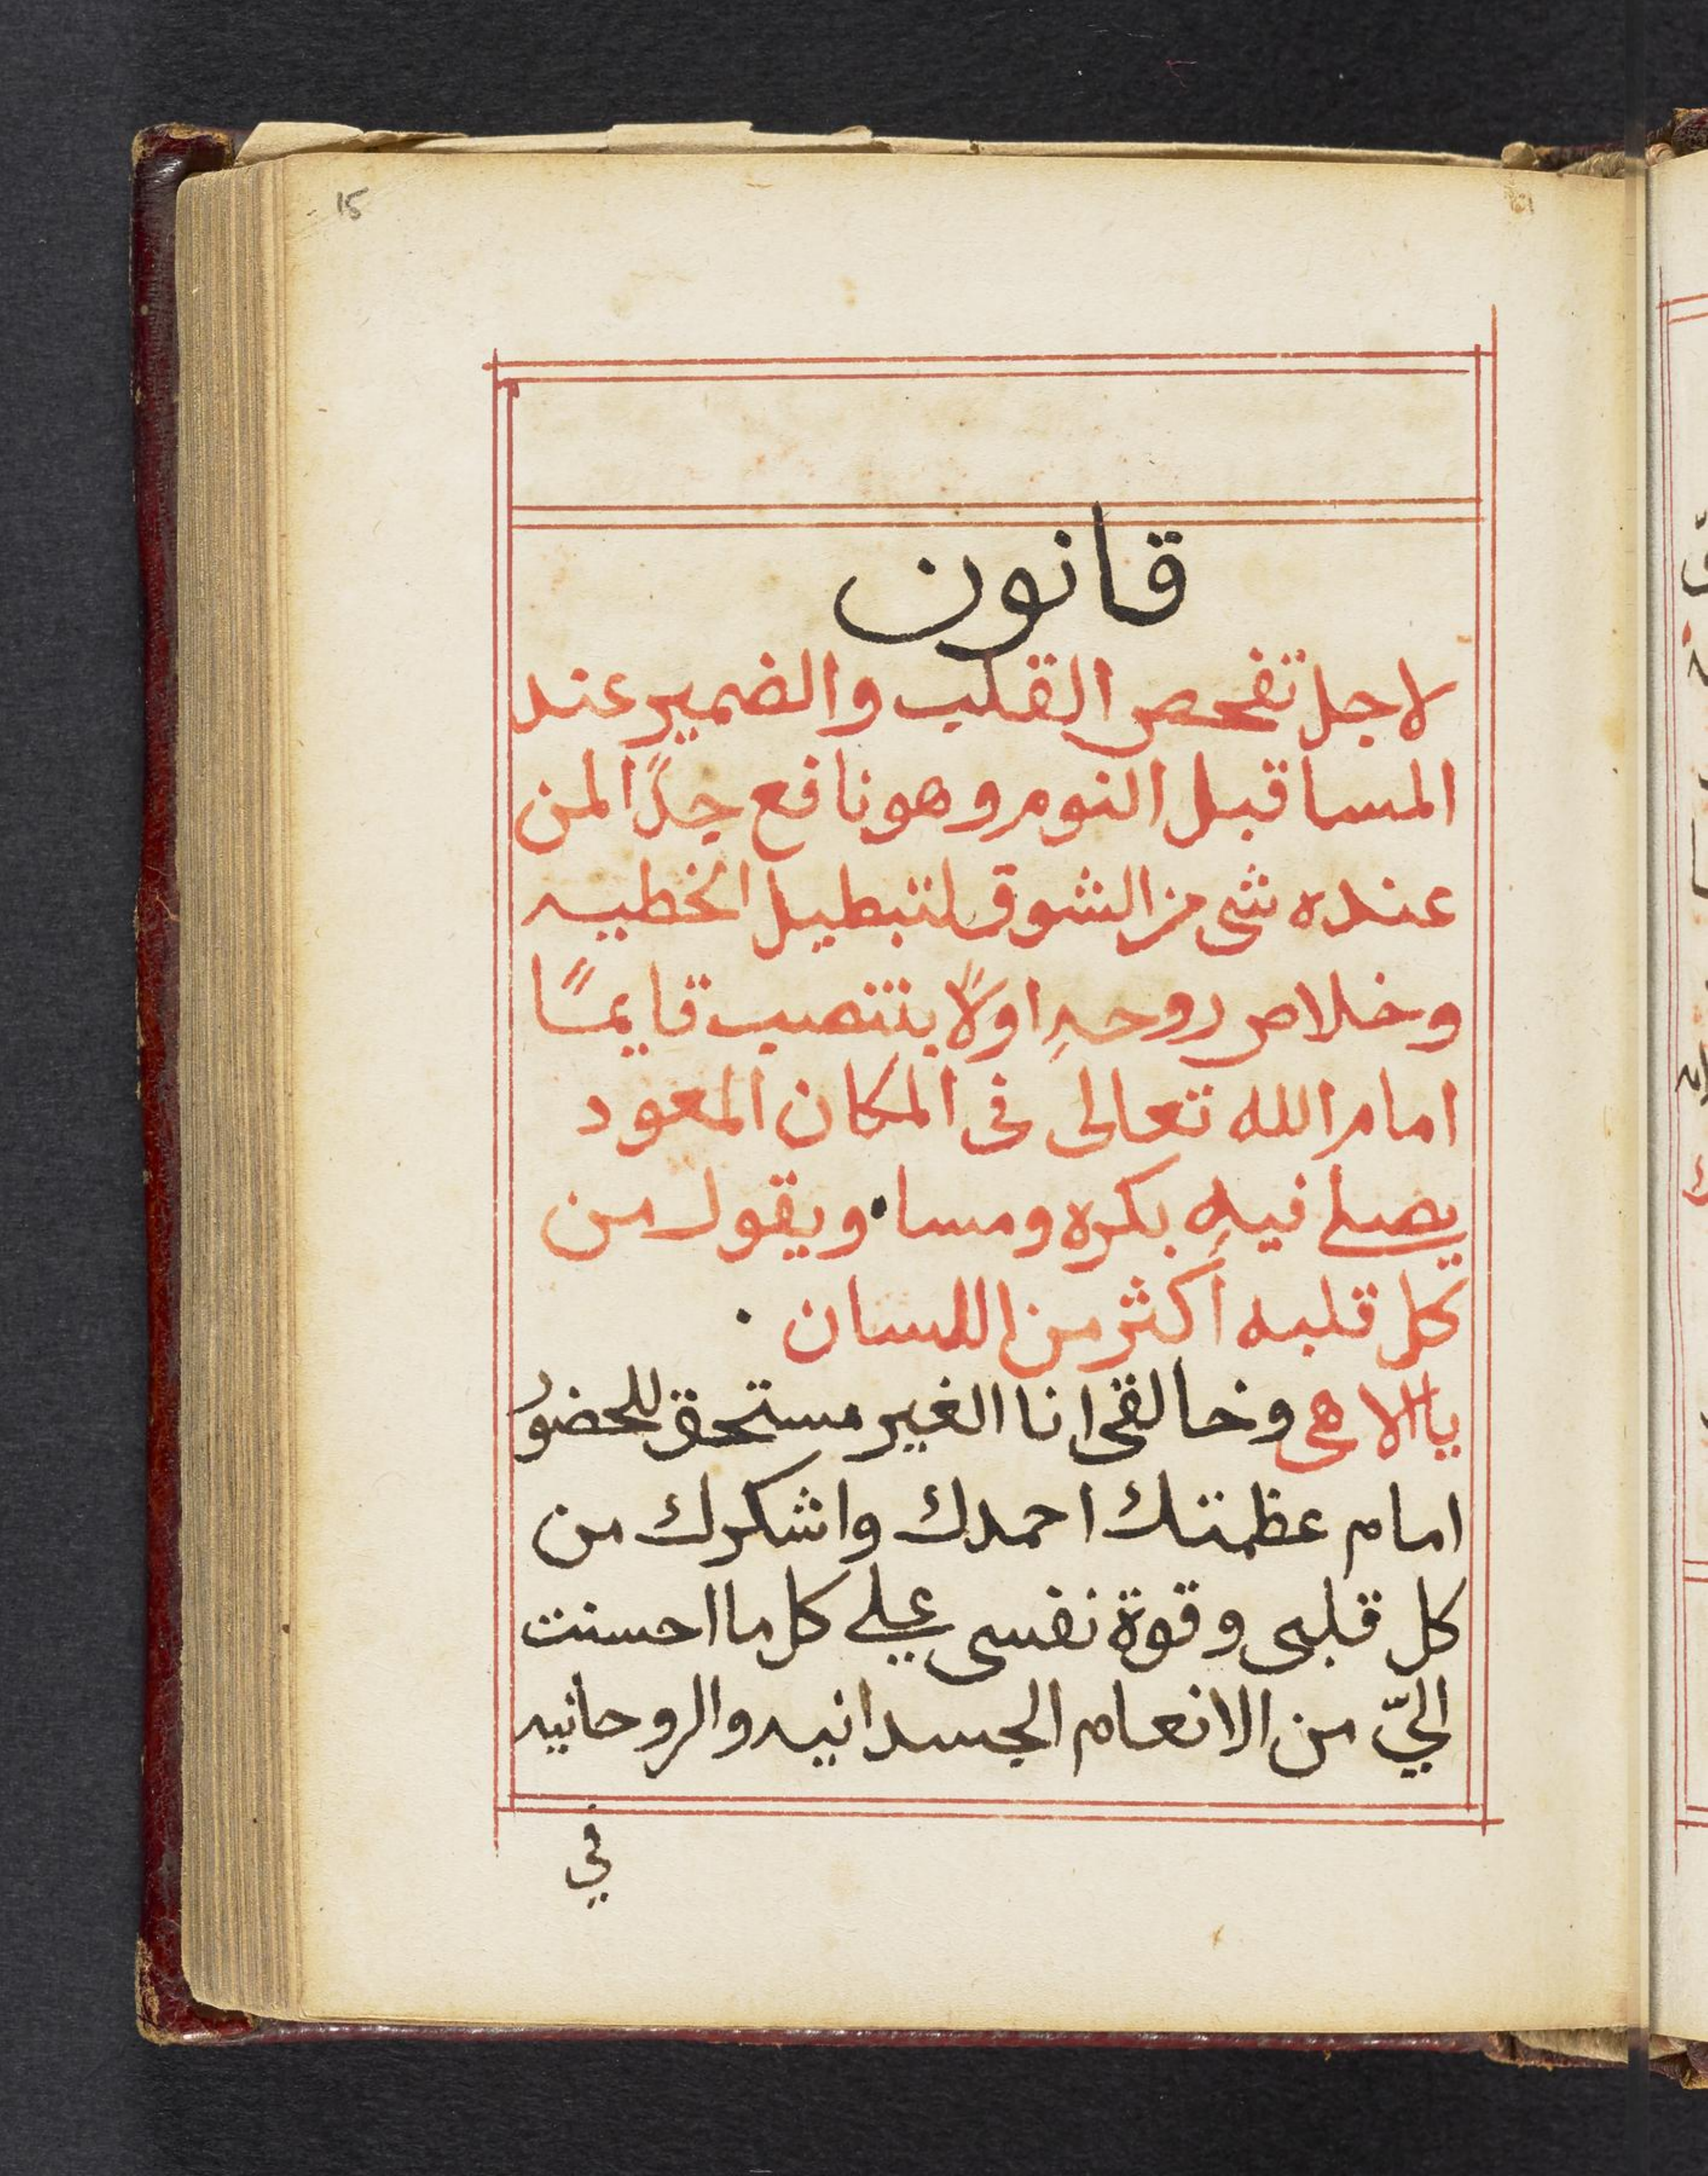 15
قانون
لاجل تفحص القلب والضمير عند
المسا قبل النوم وهو نافع جدًا لمن
عنده شي من الشوق لتبطيل الخطيه
وخلاص روحهِ اولًا ينتصب قايمًا
امام الله تعالى في المكان المعود
يصلي فيه بكره ومسا • ويقول من
كل قلبه أكثر من اللسان .
ياالاهي وخالقي انا الغير مستحق للحضور
امام عظمتك احمدك واشكرك من
كل قلبي وقوة نفسي علي كل ما احسنت
اليّ من الانعام الجسدانيه والروحانيه
في